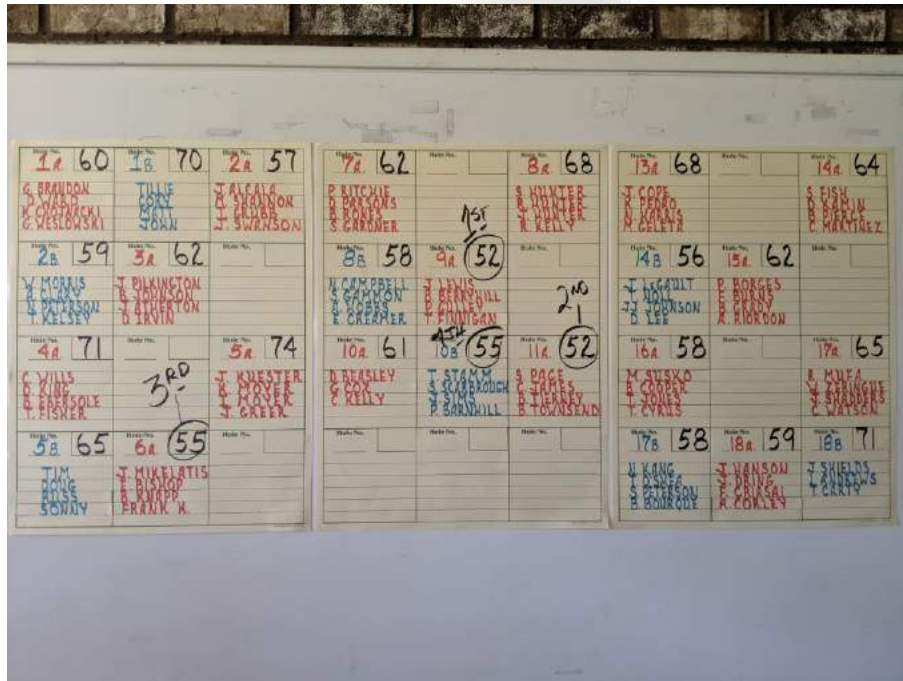 Hole No. 1A 60
G. BRANDON
D. WARD
K. CHOTRACKI
G. WESLOWSKI
Hole No. 1B 70
TILLIE
CORY
MATT
JOHN
Hole No. 2A 57
J. ALCALA
A. SHANNON
J. GRUBB
J. SWANSON
Hole No. 2B 59
W. MORRIS
R. CLARY
N. PETERSON
T. KELSEY
Hole No. 3A 62
J. PILKINGTON
B. JOHNSON
J. ATHERTON
D. IRVIN
Hole No.
Hole No. 4A 71
C. WILLS
B. KING
Q. EBERSOLE
T. FISHER
Hole No.
3RD
Hole No. 5A 74
J. KUESTER
K. MOYER
L. MOYER
J. GREER
Hole No. 5B 65
TIM
DOUG
RUSS
SONNY
Hole No. 6A 55
J. MIKELATIS
E. BISHOP
B. KNAPP
FRANK H.
Hole No.
Hole No. 7A 62
P. RITCHIE
D. PARSONS
B. BONES
S. GARDNER
Hole No.
1ST
Hole No. 8A 68
S. HUNTER
R. HUNTER
J. HUNTER
R. KELLY
Hole No. 8B 58
N. CAMPBELL
S. GAMMON
A. VOBES
E. CREAMER
Hole No. 9A 52
J. LEWIS
B. BERRYHILL
P. CULLEY
T. FINNIGAN
Hole No.
2ND
Hole No. 10A 61
D. BEASLEY
G. COX
C. KELLY
4TH
Hole No. 10B 55
T. STAMM
S. SCARBROUGH
J. SIMS
P. BARNHILL
Hole No. 11A 52
S. PAGE
C. JAMES
B. TIERNEY
B. TOWNSEND
Hole No.
Hole No.
Hole No.
Hole No. 13A 68
J. COPE
K. PEDRO
N. HARRIS
M. GELETA
Hole No.
Hole No. 14A 64
S. FISH
D. KAMIN
B. PIERCE
C. MARTINEZ
Hole No. 14B 56
J. LEGAULT
T. NOLL
JJ JOHNSON
D. LEE
Hole No. 15A 62
P. BORGES
E. BURNS
B. GRADY
A. RIORDON
Hole No.
Hole No. 16A 58
M. SUSKO
B. COOPER
T. JONES
T. CYRUS
Hole No.
Hole No. 17A 65
R. MUFA
W. ZERINGUE
J. SHADDERS
C. WATSON
Hole No. 17B 58
N. KANG
T. O'SHEA
S. PETERSON
B. BOURQUE
Hole No. 18A 59
J. HANSON
J. DRING
F. GRASAL
A. CORLEY
Hole No. 18B 71
J. SHIELDS
L. ANDREWS
T. CARTY